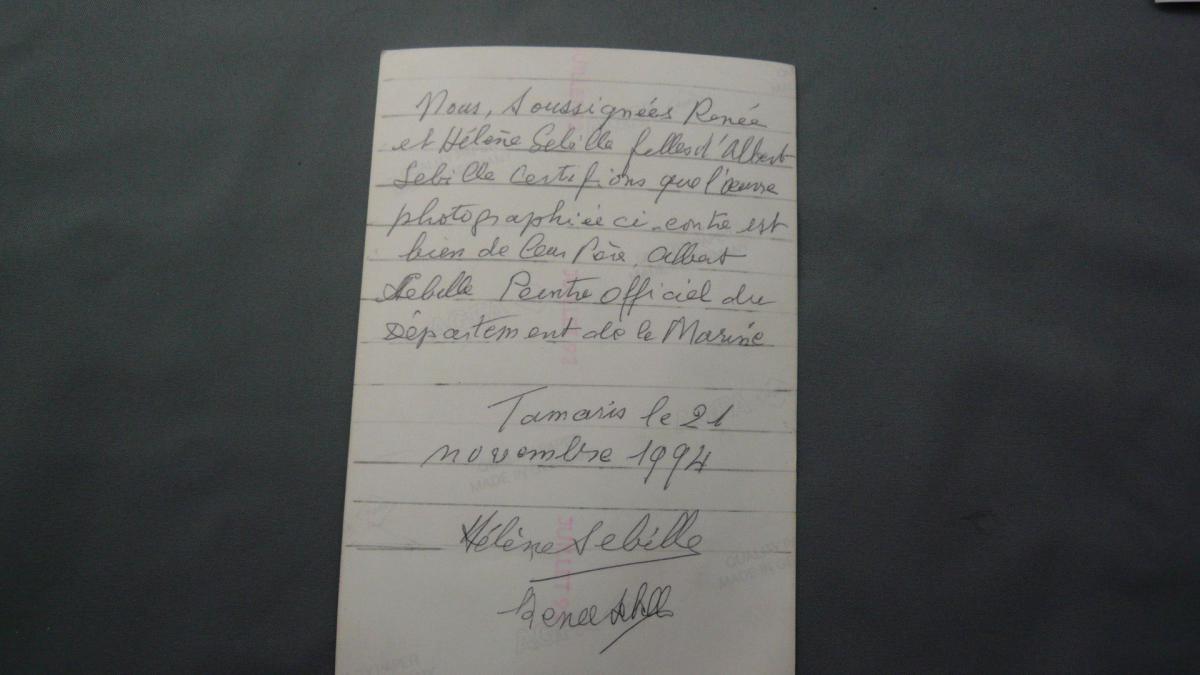 Nous, Soussignées Renée
et Hélène Sebille filles d'Albert
Sebille Certifions que l'œuvre
photographiée ci-contre est
bien de leur Père, Albert
Sebille Peintre Officiel du
Département de la Marine
Tamaris le 21
novembre 1994
Hélène Sebille
Renée Sebille
MADE IN
QUALITY
MADE IN GE
PAPER